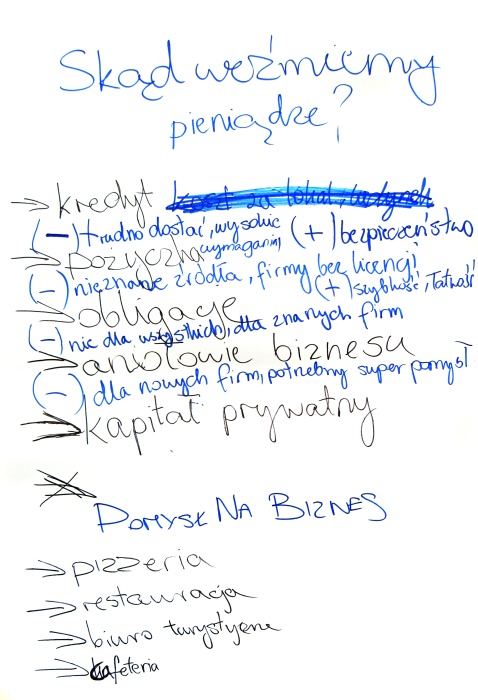 Skąd weźmiemy
pieniądze?
→ kredyt
(−) trudno dostać, wysokie wymagania, (+) bezpieczeństwo
→ pożyczka
(−) nieznane źródła, firmy bez licencji
(+) szybkość, łatwość
→ obligacje
(−) nie dla wszystkich, dla znanych firm
→ aniołowie biznesu
(−) dla nowych firm, potrzebny super pomysł
→ kapitał prywatny
POMYSŁ NA BIZNES
→ pizzeria
→ restauracja
→ biuro turystyczne
→ kafeteria